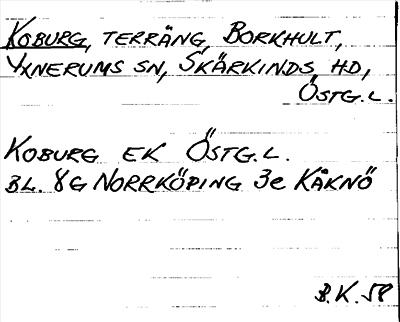 KOBURG, TERRÄNG, BORKHULT,
YXNERUMS SN, SKÄRKINDS HD,
ÖSTG.L.
KOBURG EK ÖSTG.L.
BL. 8G NORRKÖPING 3e KÅKNÖ
B.K. 58